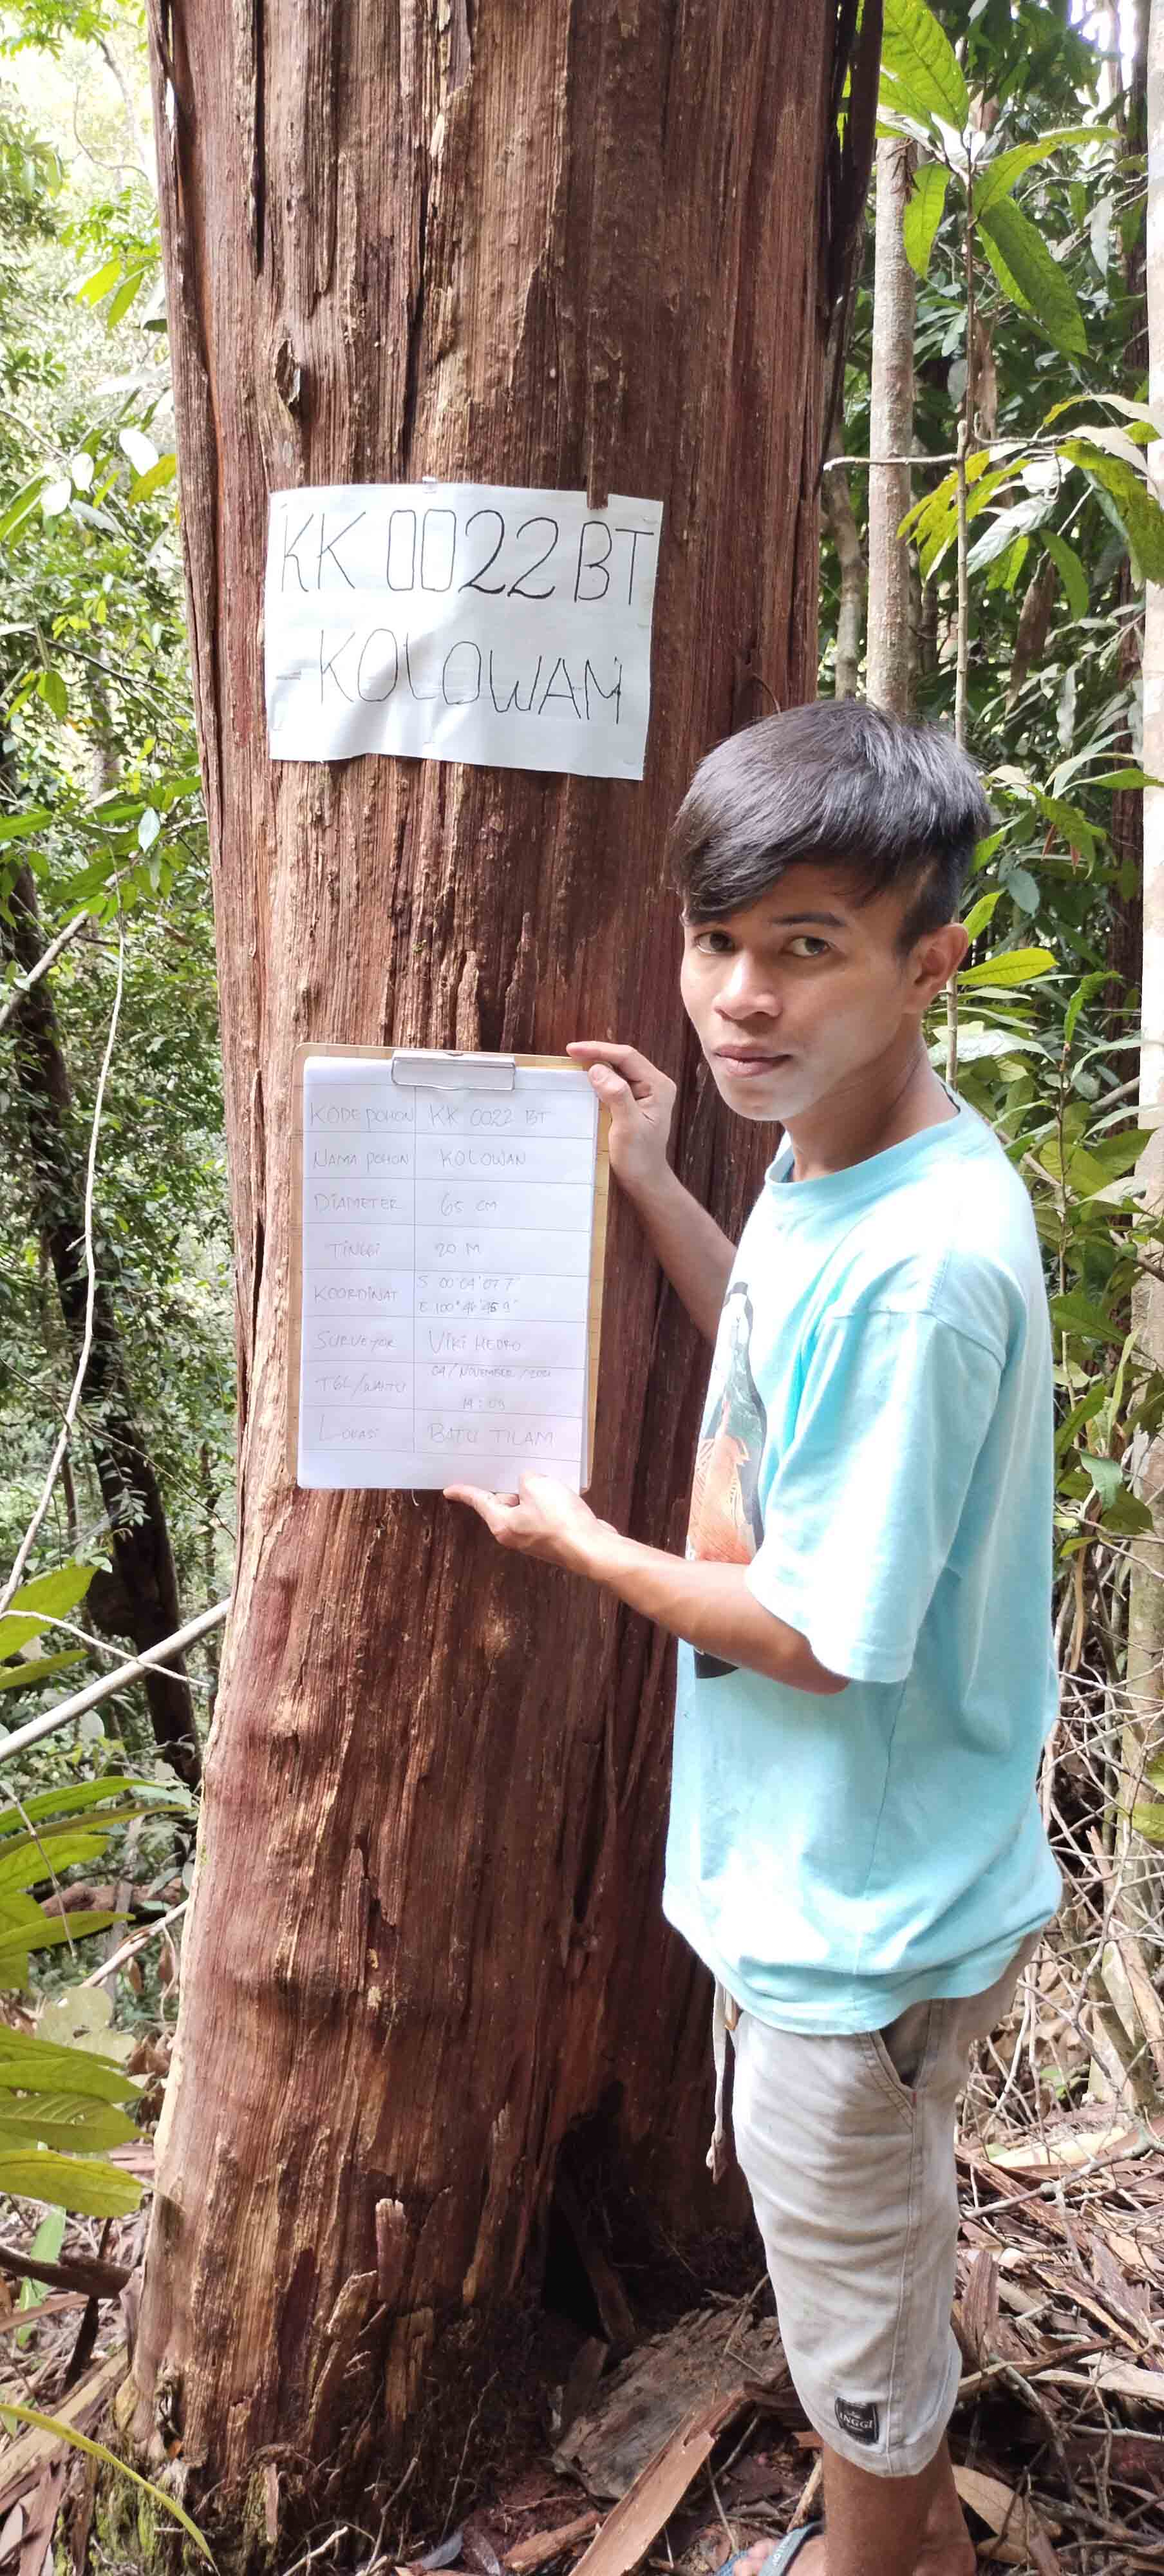 KK 0022 BT
- KOLOWAM
KODE POHON KK 0022 BT
NAMA POHON KOLOWAN
DIAMETER 65 CM
TINGGI 20 M
KOORDINAT S 00°04'07 7"
E 100°46'45 9"
SURVEYOR VIKI HEDRO
TGL/WAKTU 09/NOVEMBER/
LOKASI BATU TILAM
INGGI